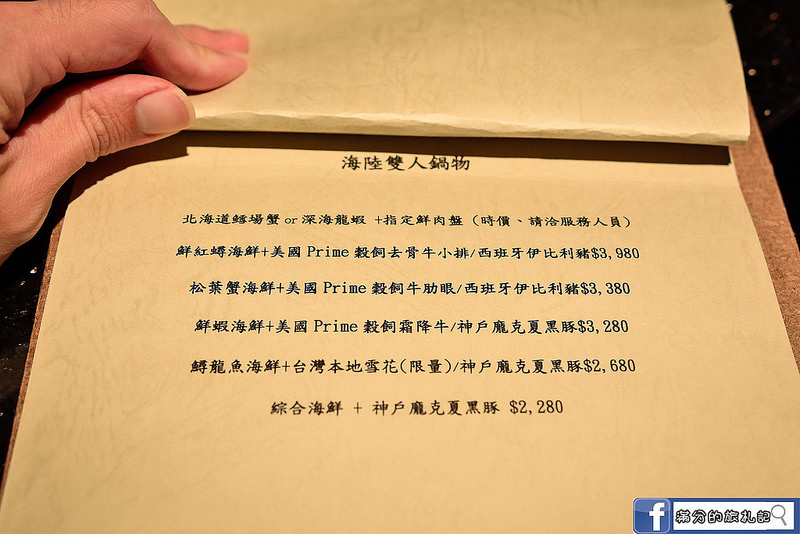 海陸雙人鍋物
北海道鱈場蟹 or 深海龍蝦 +指定鮮肉盤 (時價、請洽服務人員)
鮮紅蟳海鮮+美國 Prime 穀飼去骨牛小排/西班牙伊比利豬$3,980
松葉蟹海鮮+美國 Prime 穀飼牛肋眼/西班牙伊比利豬$3,380
鮮蝦海鮮+美國 Prime 穀飼霜降牛/神戶龐克夏黑豚$3,280
鱘龍魚海鮮+台灣本地雪花(限量)/神戶龐克夏黑豚$2,680
綜合海鮮 + 神戶龐克夏黑豚 $2,280
f 滿分的旅札記